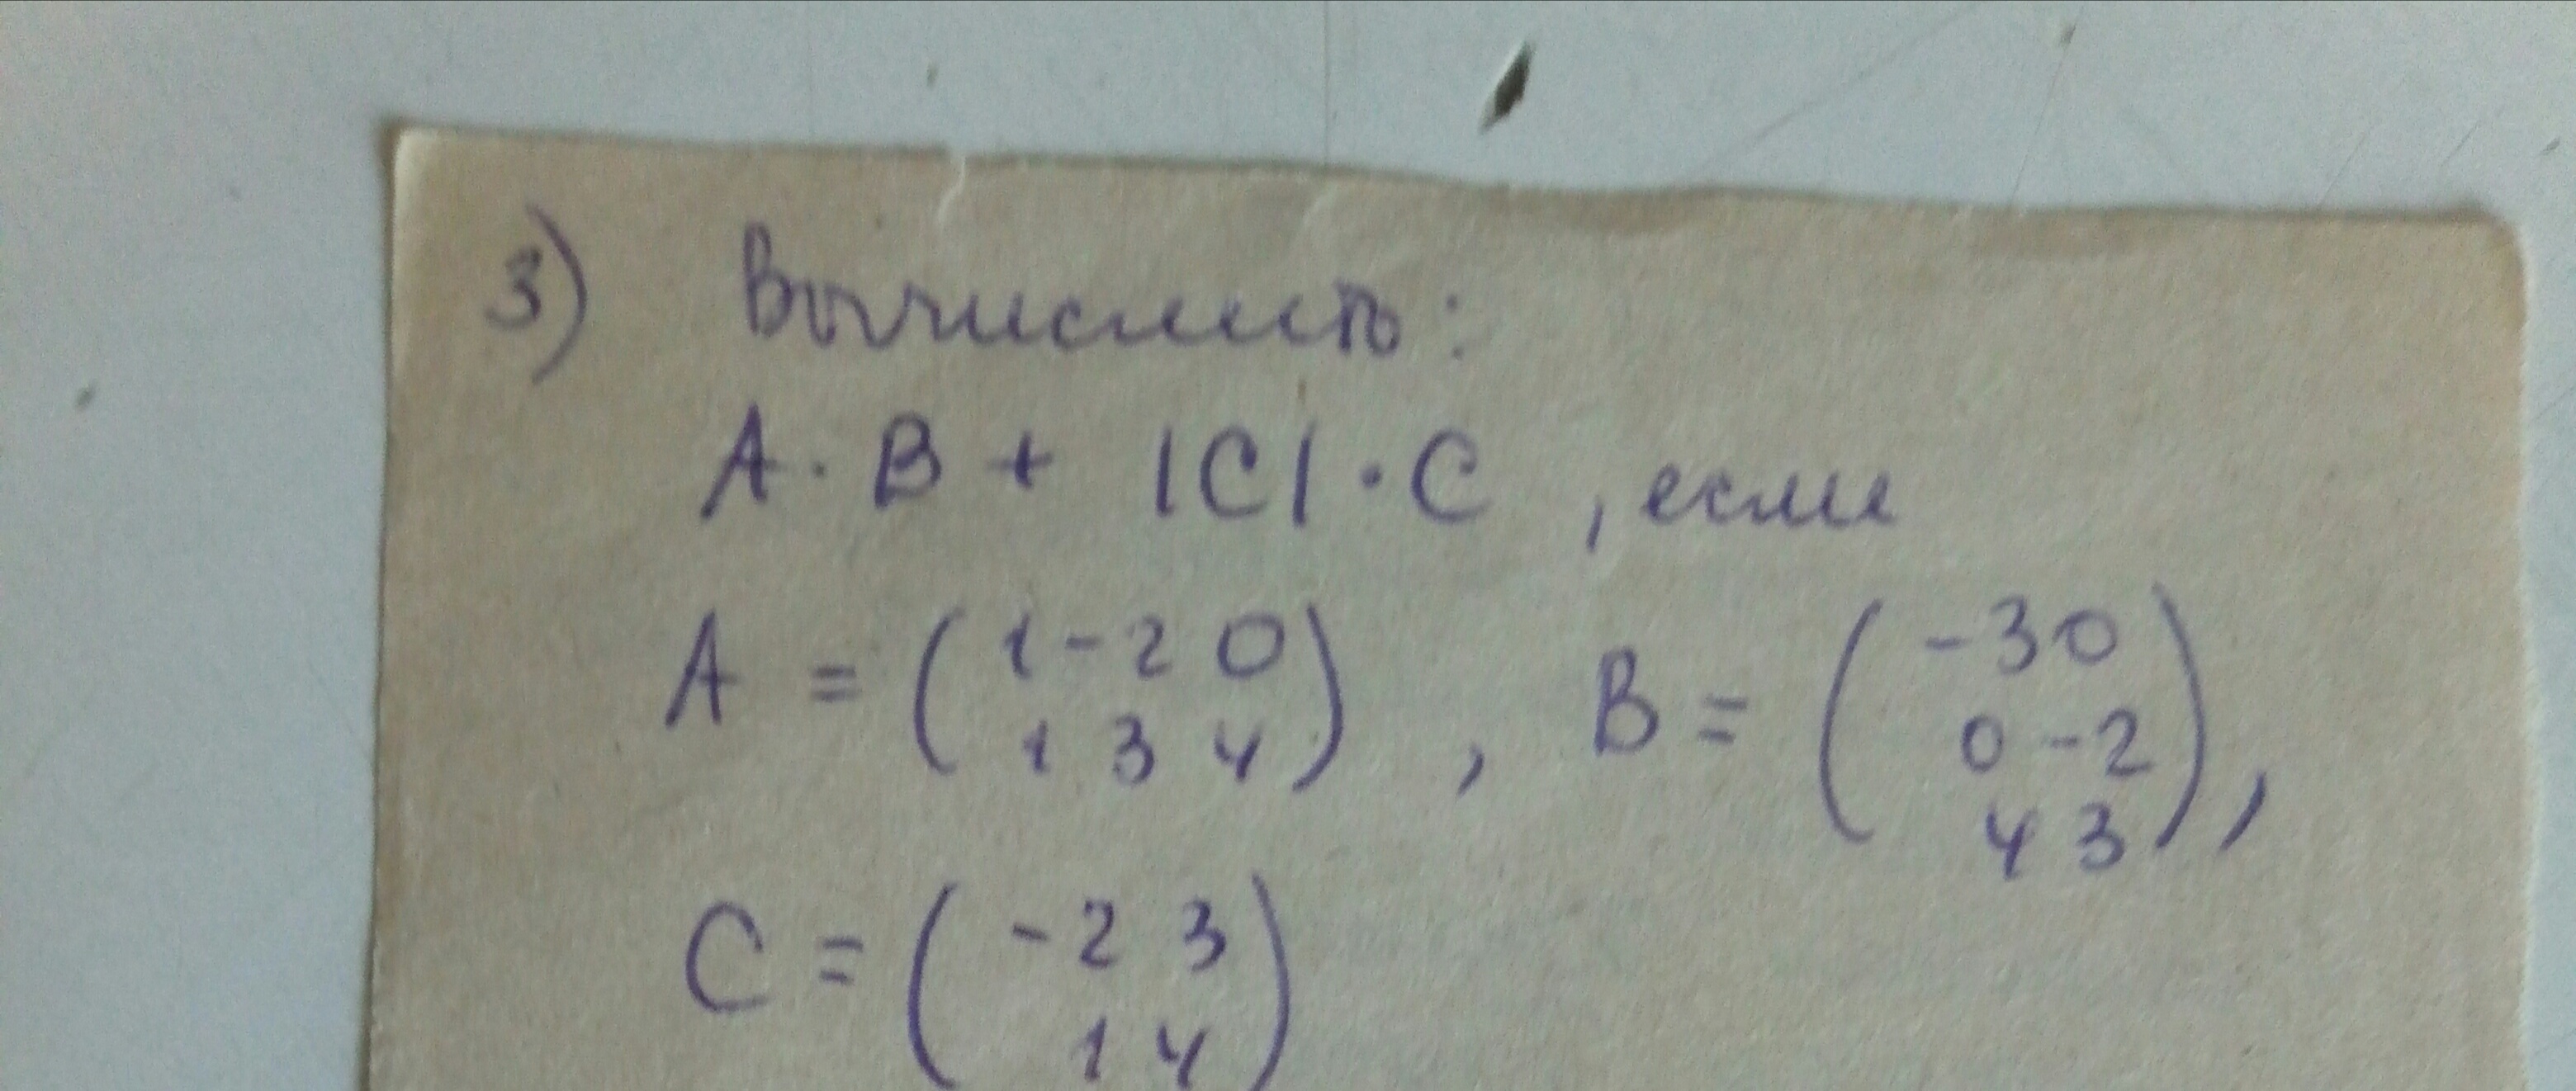 3) Вычислить:
A · B + |C| · C , если
A = ( 1 -2 0 ) , B = ( -3 0 ) ,
1 3 4
0 -2
4 3
C = ( -2 3 )
1 4